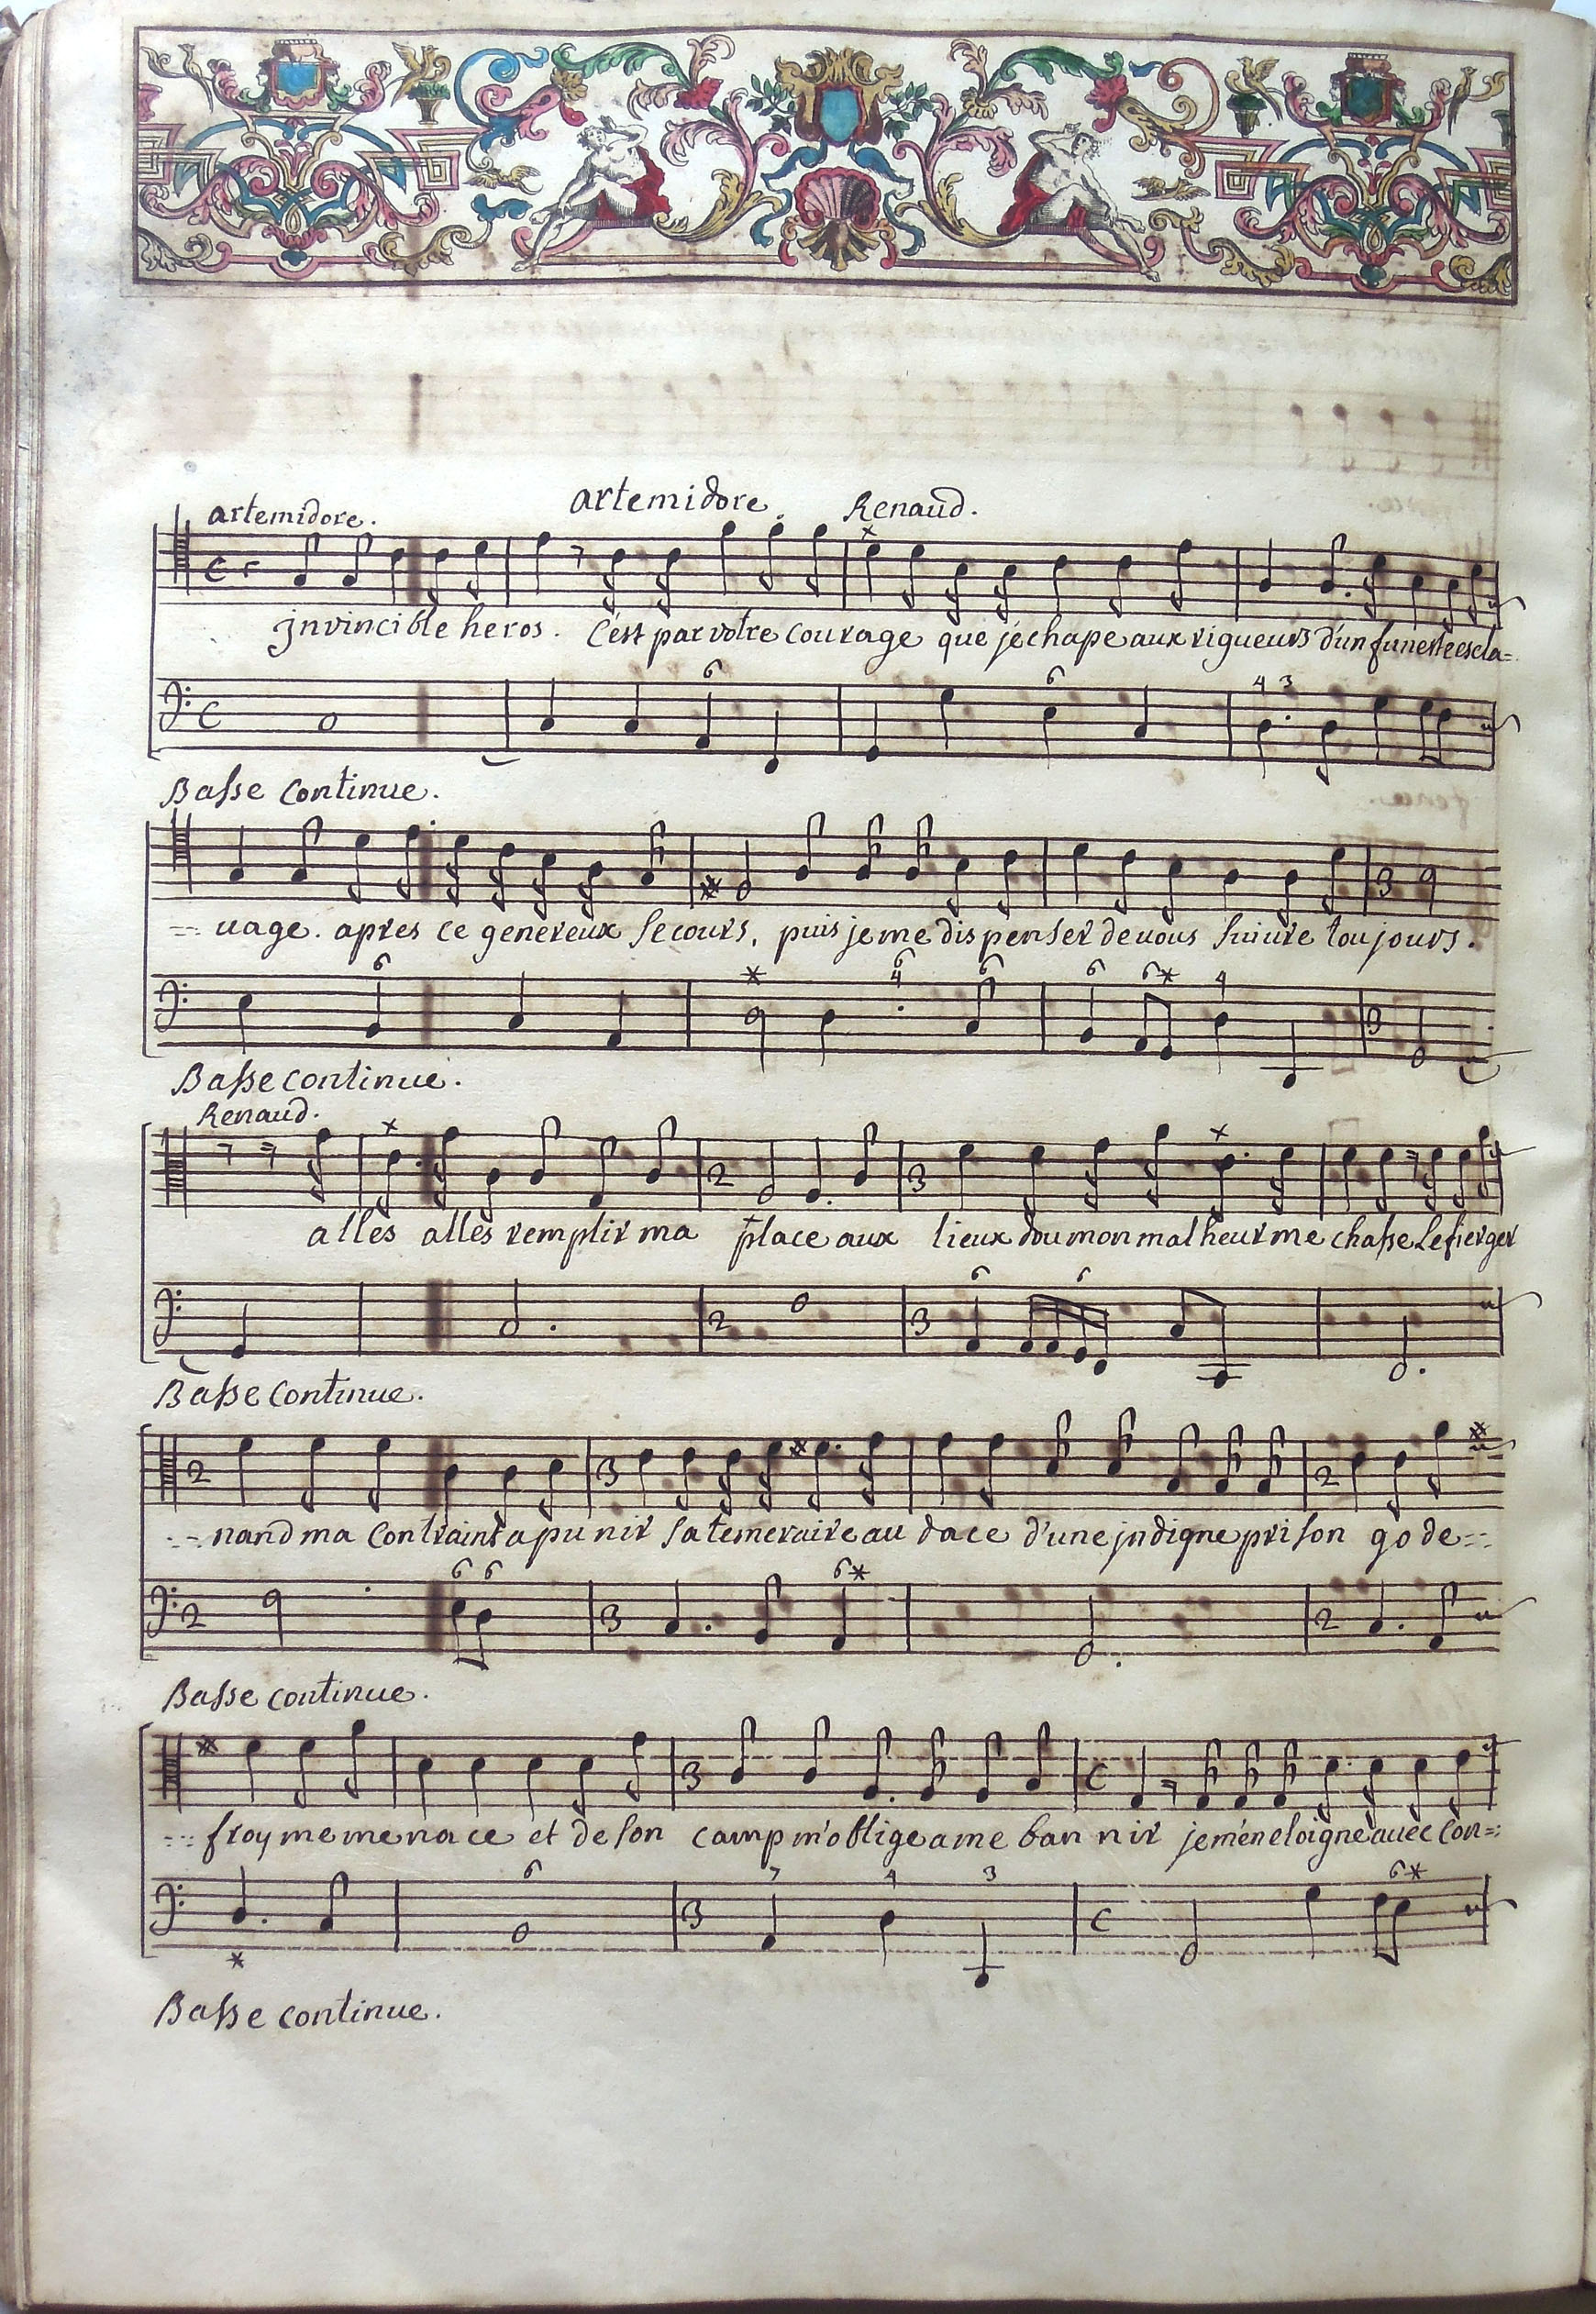 artemidore. artemidore. Renaud.
jnvincible heros. C'est par votre courage que je chape aux rigueurs d'un funeste escla=
Basse Continue.
=uage. apres ce genereux secours, puis je me dispenser de uous suiure toujours.
Basse continue.
Renaud.
alles alles remplir ma place aux lieux dou mon malheur me chasse Le fier ger
Basse Continue.
=nand ma Contraint a punir sa temeraire au dace d'une jndigne prison gode=
Basse continue.
=froy me menace et de son camp m'oblige a me bannir je m'en eloigne auec Con=
Basse continue.